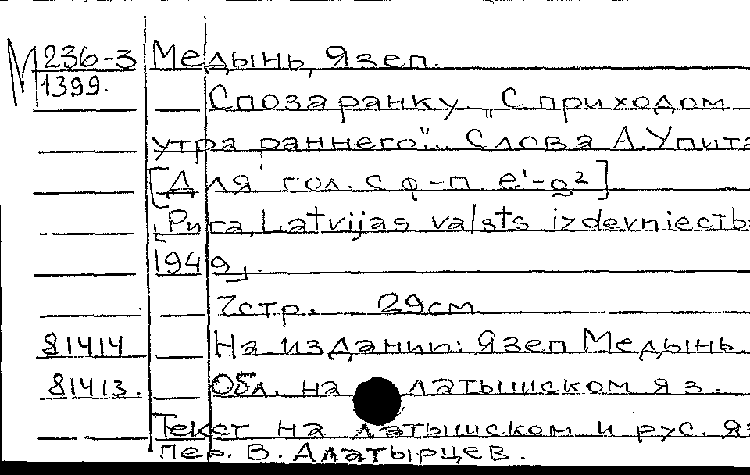 М 236-3 Медынь, Язеп.
1399.
Спозаранку. „С приходом
утра раннего". Слова А.Упита
[Для гол. с ф-п. e'-a²]
[Рига, Latvijas valsts izdevniecīb
1949].
7стр. 29см
81414 На издании: Язеп Медынь
81413. Обл. на латышском яз.
Текст на латышском и рус. яз
пер. В. Алатырцев.